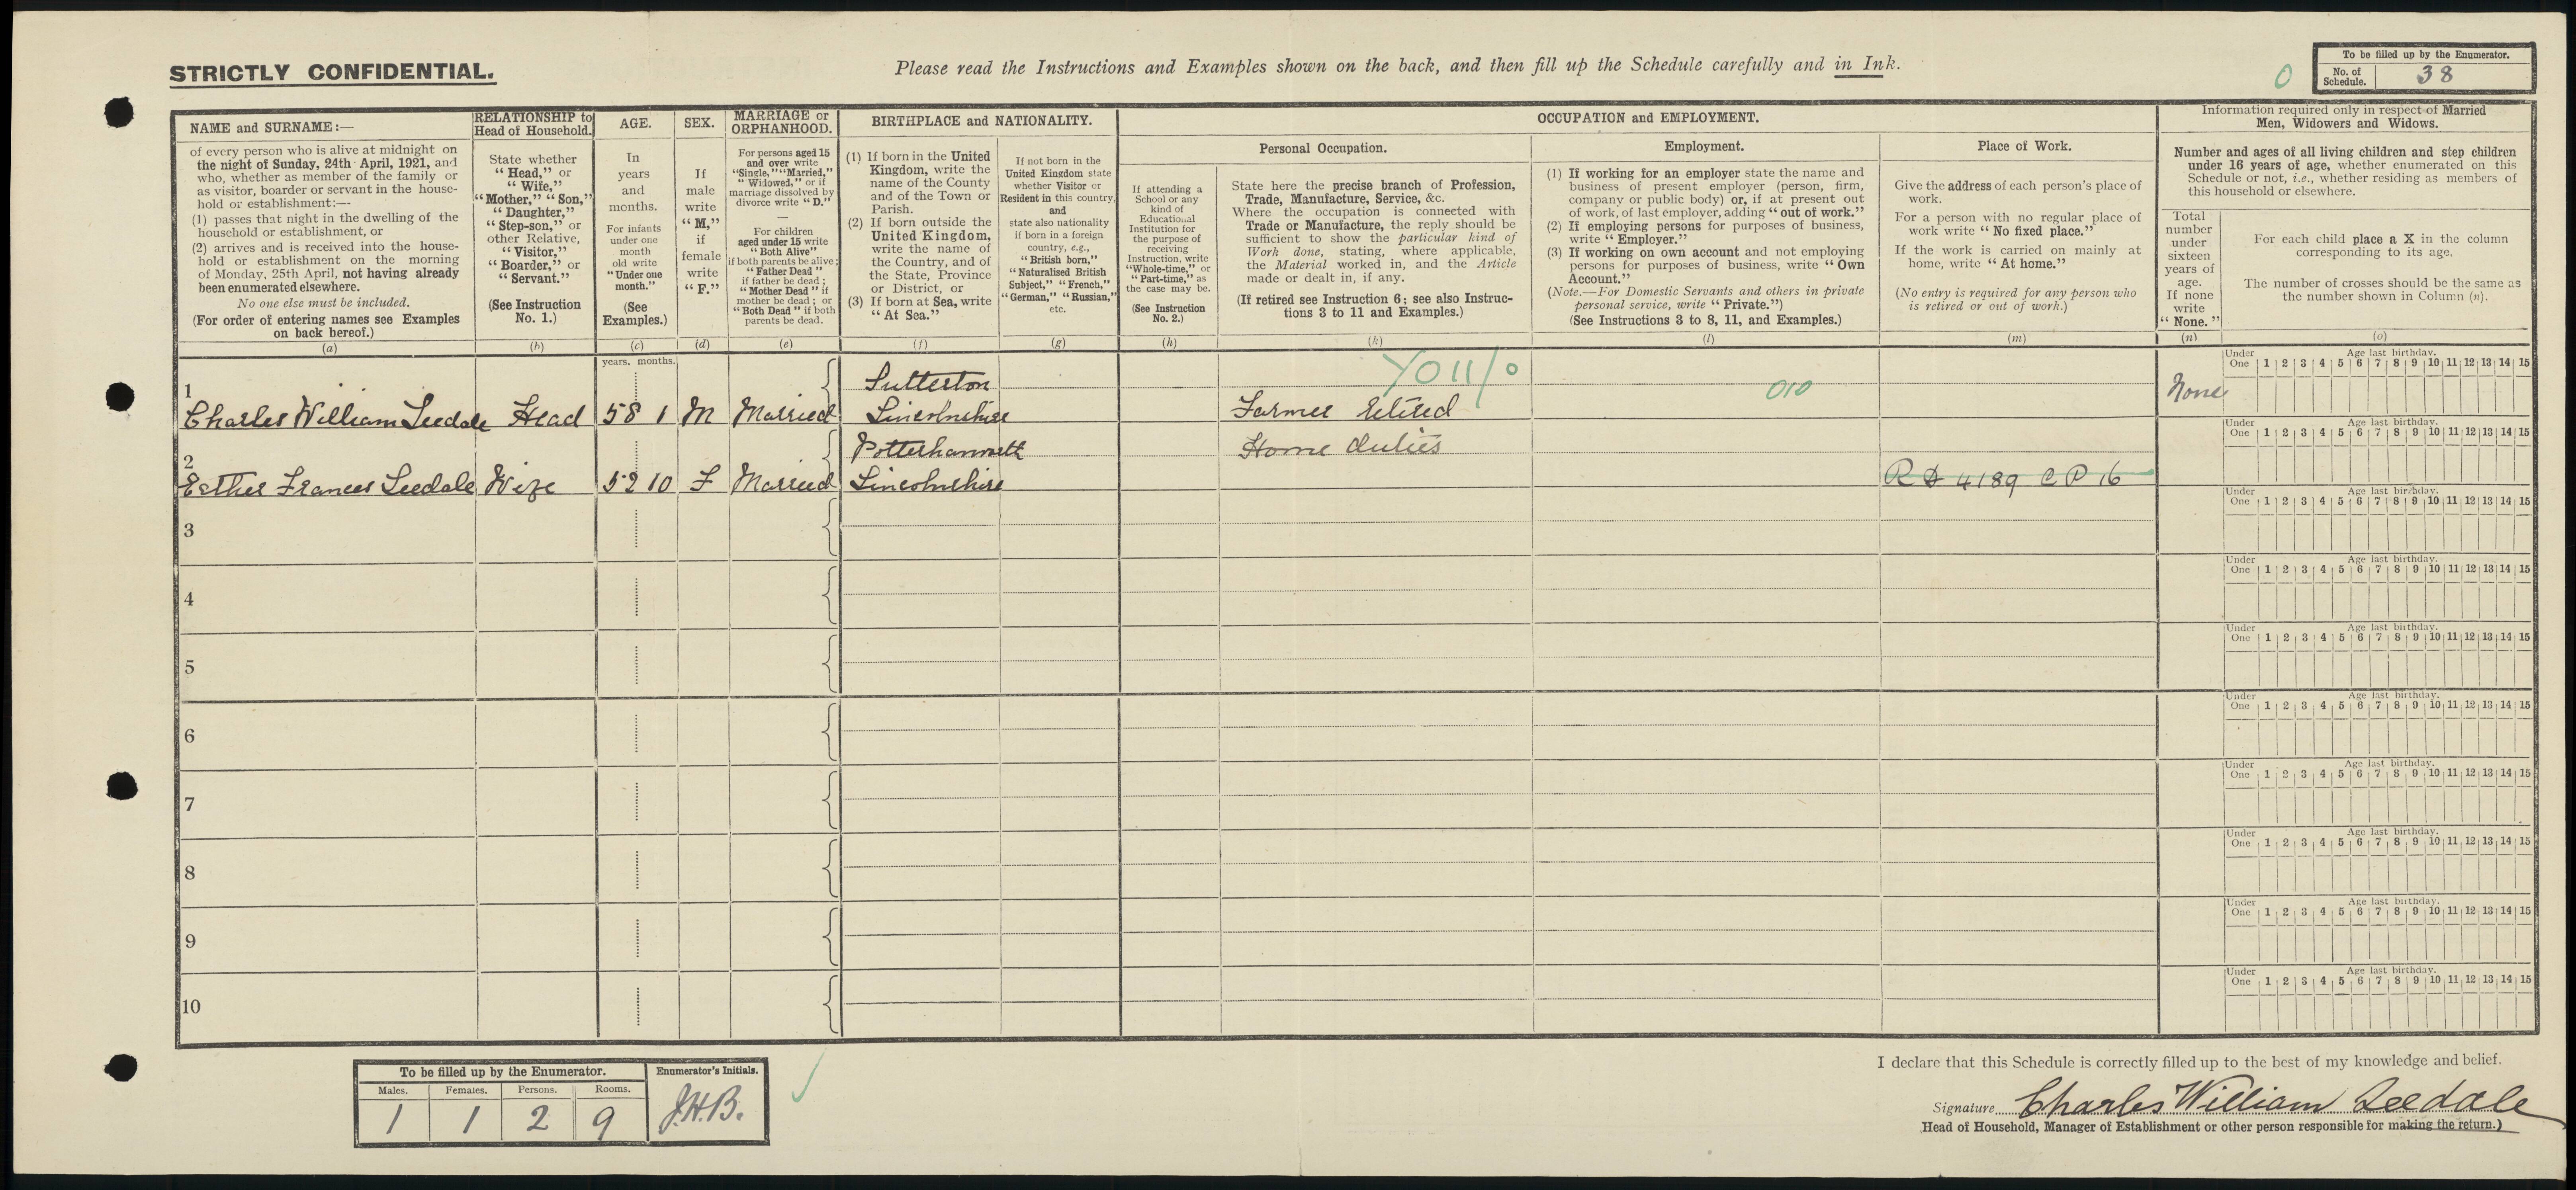 STRICTLY CONFIDENTIAL.
Please read the Instructions and Examples shown on the back, and then fill up the Schedule carefully and in Ink.
0
To be filled up by the Enumerator.
No. of Schedule. 38
NAME and SURNAME:—
of every person who is alive at midnight on
the night of Sunday, 24th April, 1921, and
who, whether as member of the family or
as visitor, boarder or servant in the house-
hold or establishment:—
(1) passes that night in the dwelling of the
household or establishment, or
(2) arrives and is received into the house-
hold or establishment on the morning
of Monday, 25th April, not having already
been enumerated elsewhere.
No one else must be included.
(For order of entering names see Examples
on back hereof.)
(a)
RELATIONSHIP to
Head of Household.
State whether
“Head,” or
“Wife,”
“Mother,” “Son,”
“Daughter,”
“Step-son,” or
other Relative,
“Visitor,”
“Boarder,” or
“Servant.”
(See Instruction
No. 1.)
(b)
AGE.
In
years
and
months.
For infants
under one
month
old write
“Under one
month.”
(See
Examples.)
(c)
SEX.
If
male
write
“M,”
if
female
write
“F.”
(d)
MARRIAGE or
ORPHANHOOD.
For persons aged 15
and over write
“Single,” “Married,”
“Widowed,” or if
marriage dissolved by
divorce write “D.”
—
For children
aged under 15 write
“Both Alive”
if both parents be alive;
“Father Dead”
if father be dead;
“Mother Dead” if
mother be dead; or
“Both Dead” if both
parents be dead.
(e)
BIRTHPLACE and NATIONALITY.
(1) If born in the United
Kingdom, write the
name of the County
and of the Town or
Parish.
(2) If born outside the
United Kingdom,
write the name of
the Country, and of
the State, Province
or District, or
(3) If born at Sea, write
“At Sea.”
(f)
If not born in the
United Kingdom state
whether Visitor or
Resident in this country,
and
state also nationality
if born in a foreign
country, e.g.,
“British born,”
“Naturalised British
Subject,” “French,”
“German,” “Russian,”
etc.
(g)
OCCUPATION and EMPLOYMENT.
Personal Occupation.
If attending a
School or any
kind of
Educational
Institution for
the purpose of
receiving
Instruction, write
“Whole-time,” or
“Part-time,” as
the case may be.
(See Instruction
No. 2.)
(h)
State here the precise branch of Profession,
Trade, Manufacture, Service, &c.
Where the occupation is connected with
Trade or Manufacture, the reply should be
sufficient to show the particular kind of
Work done, stating, where applicable,
the Material worked in, and the Article
made or dealt in, if any.
(If retired see Instruction 6; see also Instruc-
tions 3 to 11 and Examples.)
(k)
Employment.
(1) If working for an employer state the name and
business of present employer (person, firm,
company or public body) or, if at present out
of work, of last employer, adding “out of work.”
(2) If employing persons for purposes of business,
write “Employer.”
(3) If working on own account and not employing
persons for purposes of business, write “Own
Account.”
(Note.—For Domestic Servants and others in private
personal service, write “Private.”)
(See Instructions 3 to 8, 11, and Examples.)
(l)
Place of Work.
Give the address of each person’s place of
work.
For a person with no regular place of
work write “No fixed place.”
If the work is carried on mainly at
home, write “At home.”
(No entry is required for any person who
is retired or out of work.)
(m)
Information required only in respect of Married
Men, Widowers and Widows.
Number and ages of all living children and step children
under 16 years of age, whether enumerated on this
Schedule or not, i.e., whether residing as members of
this household or elsewhere.
Total
number
under
sixteen
years of
age.
If none
write
“None.”
(n)
For each child place a X in the column
corresponding to its age.
The number of crosses should be the same as
the number shown in Column (n).
(o)
years. months.
1
Sutterton
Y011/0
010
Charles William Leedale Head 58 1 M Married Lincolnshire Farmer Retired None
Under One Age last birthday. 1 2 3 4 5 6 7 8 9 10 11 12 13 14 15
2
Potterhanworth Home duties
Esther Frances Leedale Wife 52 10 F Married Lincolnshire RD 4189 CP 16
Under One Age last birthday. 1 2 3 4 5 6 7 8 9 10 11 12 13 14 15
3
Under One Age last birthday. 1 2 3 4 5 6 7 8 9 10 11 12 13 14 15
4
Under One Age last birthday. 1 2 3 4 5 6 7 8 9 10 11 12 13 14 15
5
Under One Age last birthday. 1 2 3 4 5 6 7 8 9 10 11 12 13 14 15
6
Under One Age last birthday. 1 2 3 4 5 6 7 8 9 10 11 12 13 14 15
7
Under One Age last birthday. 1 2 3 4 5 6 7 8 9 10 11 12 13 14 15
8
Under One Age last birthday. 1 2 3 4 5 6 7 8 9 10 11 12 13 14 15
9
Under One Age last birthday. 1 2 3 4 5 6 7 8 9 10 11 12 13 14 15
10
Under One Age last birthday. 1 2 3 4 5 6 7 8 9 10 11 12 13 14 15
To be filled up by the Enumerator.
Males. Females. Persons. Rooms.
1 1 2 9
Enumerator’s Initials.
J.H.B.
I declare that this Schedule is correctly filled up to the best of my knowledge and belief.
Signature Charles William Leedale
Head of Household, Manager of Establishment or other person responsible for making the return.)